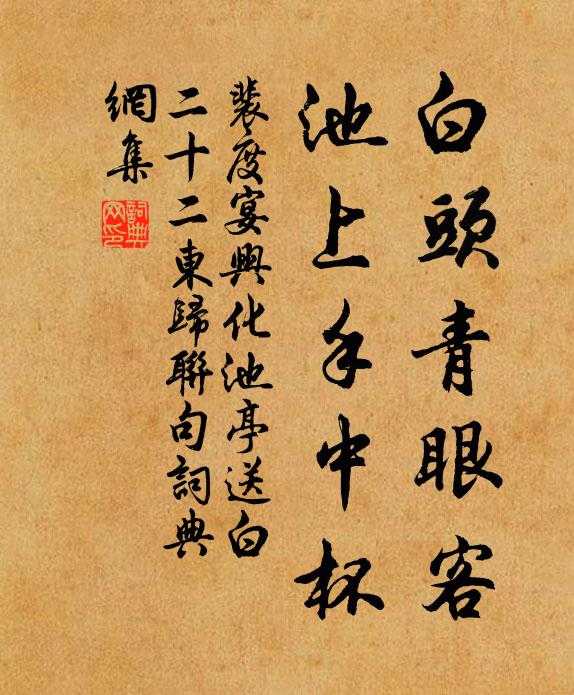 白頭青眼客
池上手中杯
裴度宴興化池亭送白
二十二東歸聯句詞典
網集
詞典
网印